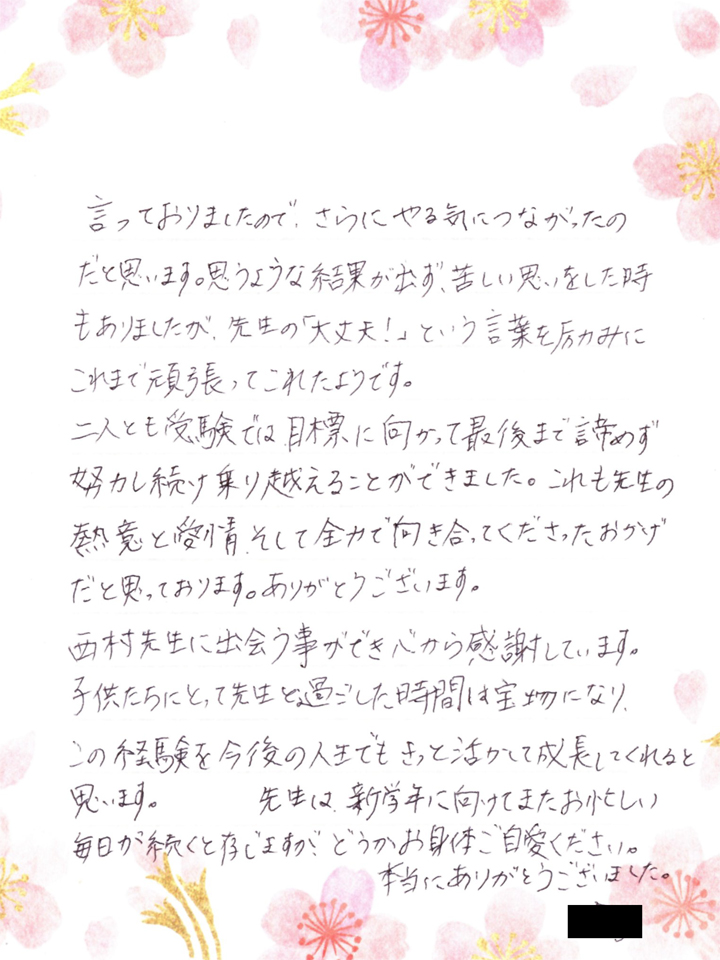 言っておりましたので、さらにやる気につながったの
だと思います。思うような結果が出ず、苦しい思いをした時
もありましたが、先生の「大丈夫!」という言葉を励みに
これまで頑張ってこれたようです。
二人とも受験では目標に向かって最後まで諦めず
努力し続け乗り越えることができました。これも先生の
熱意と愛情、そして全力で向き合ってくださったおかげ
だと思っております。ありがとうございます。
西村先生に出会う事ができ心から感謝しています。
子供たちにとって先生と過ごした時間は宝物になり、
この経験を今後の人生でもきっと活かして成長してくれると
思います。 先生は、新学年に向けてまたお忙しい
毎日が続くと存じますが、どうかお身体ご自愛ください。
本当にありがとうございました。